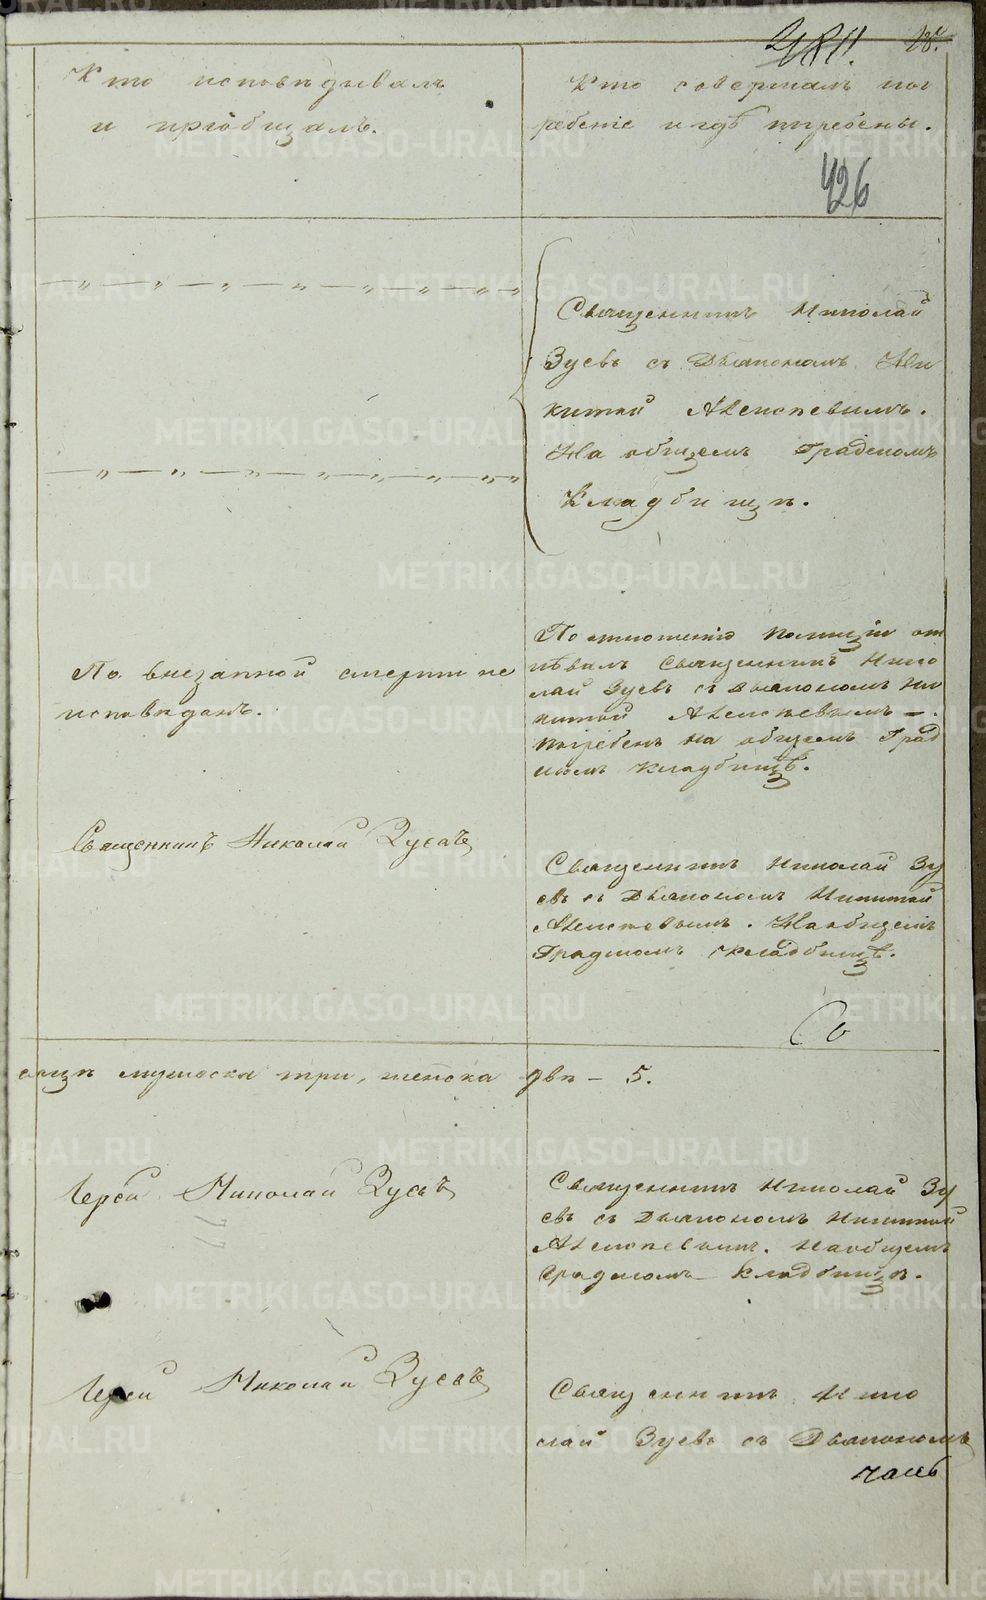 Кто исповѣдывалъ
и пріобщалъ.
Кто совершалъ пог
ребеніе и гдѣ погребены.
426
Священникъ Николай
Зуевъ съ Дьякономъ Ни
китой
На общемъ Градскомъ
Кладбищѣ.
По внезапной смерти не
исповѣданъ.
По отношенію Полиціи от
пѣвалъ Священникъ Нико
лай Зуевъ съ Дьякономъ Ни
китой
Погребенъ на общемъ Град
скомъ Кладбищѣ.
Священникъ Николай Зуевъ
Священникъ Николай Зу
евъ съ Дьякономъ Никитой
На общемъ
Градскомъ Кладбищѣ.
мужеска три, женска двѣ – 5.
Іерей Николай Зуевъ
Священникъ Николай Зу
евъ съ Дьякономъ Никитой
На общемъ
Градскомъ Кладбищѣ.
Іерей Николай Зуевъ
Священникъ Нико
лай Зуевъ съ Дьякономъ
METRIKI.GASO-URAL.RU